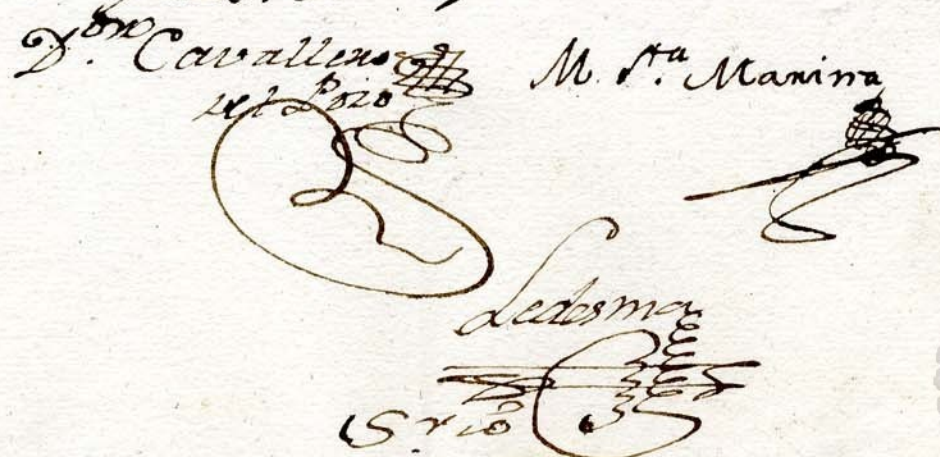 D.ᵒʳ Cavallero
del Pozo
M. S.ᵗᵃ Marina
Ledesma
Srio